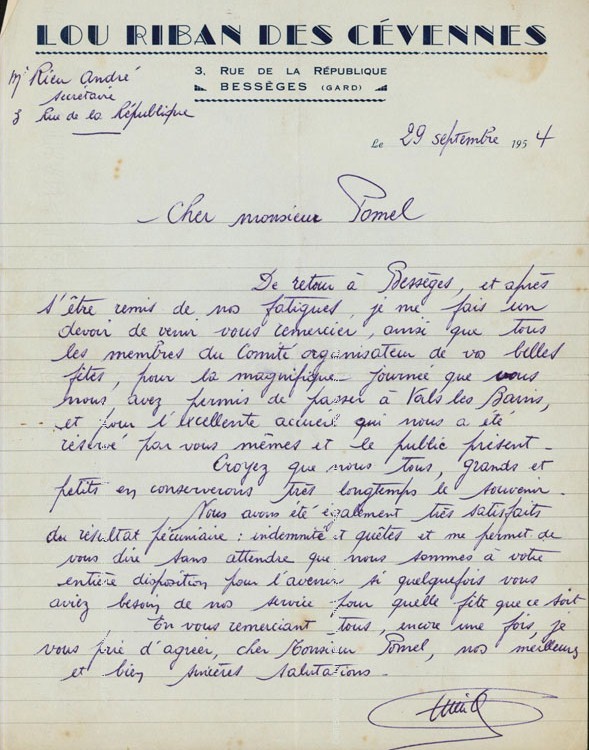 LOU RIBAN DES CÉVENNES
3, RUE DE LA RÉPUBLIQUE
BESSÈGES (GARD)
Mr Rieu André
secrétaire
3 Rue de la République
Le 29 septembre 1954
- Cher monsieur Pomel
De retour à Bessèges, et après
s'être remis de nos fatigues, je me fais un
devoir de venir vous remercier, ainsi que tous
les membres du Comité organisateur de vos belles
fêtes, pour la magnifique journée que vous
nous avez permis de passer à Vals les Bains,
et pour l'excellente accueil qui nous a été
réservé par vous mêmes et le public présent -
Croyez que nous tous, grands et
petits en conserverons très longtemps le souvenir -
Nous avons été également très satisfaits
du résultat pécuniaire : indemnité et quêtes et me permet de
vous dire sans attendre que nous sommes à votre
entière disposition pour l'avenir si quelquefois vous
aviez besoin de nos service pour quelle fête que ce soit
En vous remerciant tous, encore une fois, je
vous prie d'agréer, cher Monsieur Pomel, nos meilleurs
et bien sincères salutations -